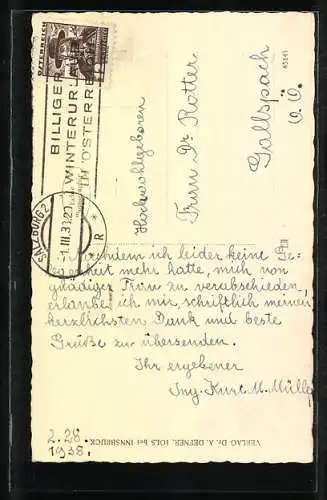 ÖSTERREICH
BILLIGER
WINTERURL
IN ÖSTERRE
SALZBURG 2
-1.III.38.20
R
Hochwohlgeboren
Frau Dr. Rotter
Gallspach
O.Ö.
Nachdem ich leider keine Ge-
legenheit mehr hatte, mich von
gnädiger Frau zu verabschieden,
erlaube ich mir, schriftlich meinen
herzlichsten Dank und beste
Grüße zu übersenden.
Ihr ergebener
Ing. Kurt M. Müller
2.28.
1938.
VERLAG DR. A. DEFNER, IGLS bei INNSBRUCK.